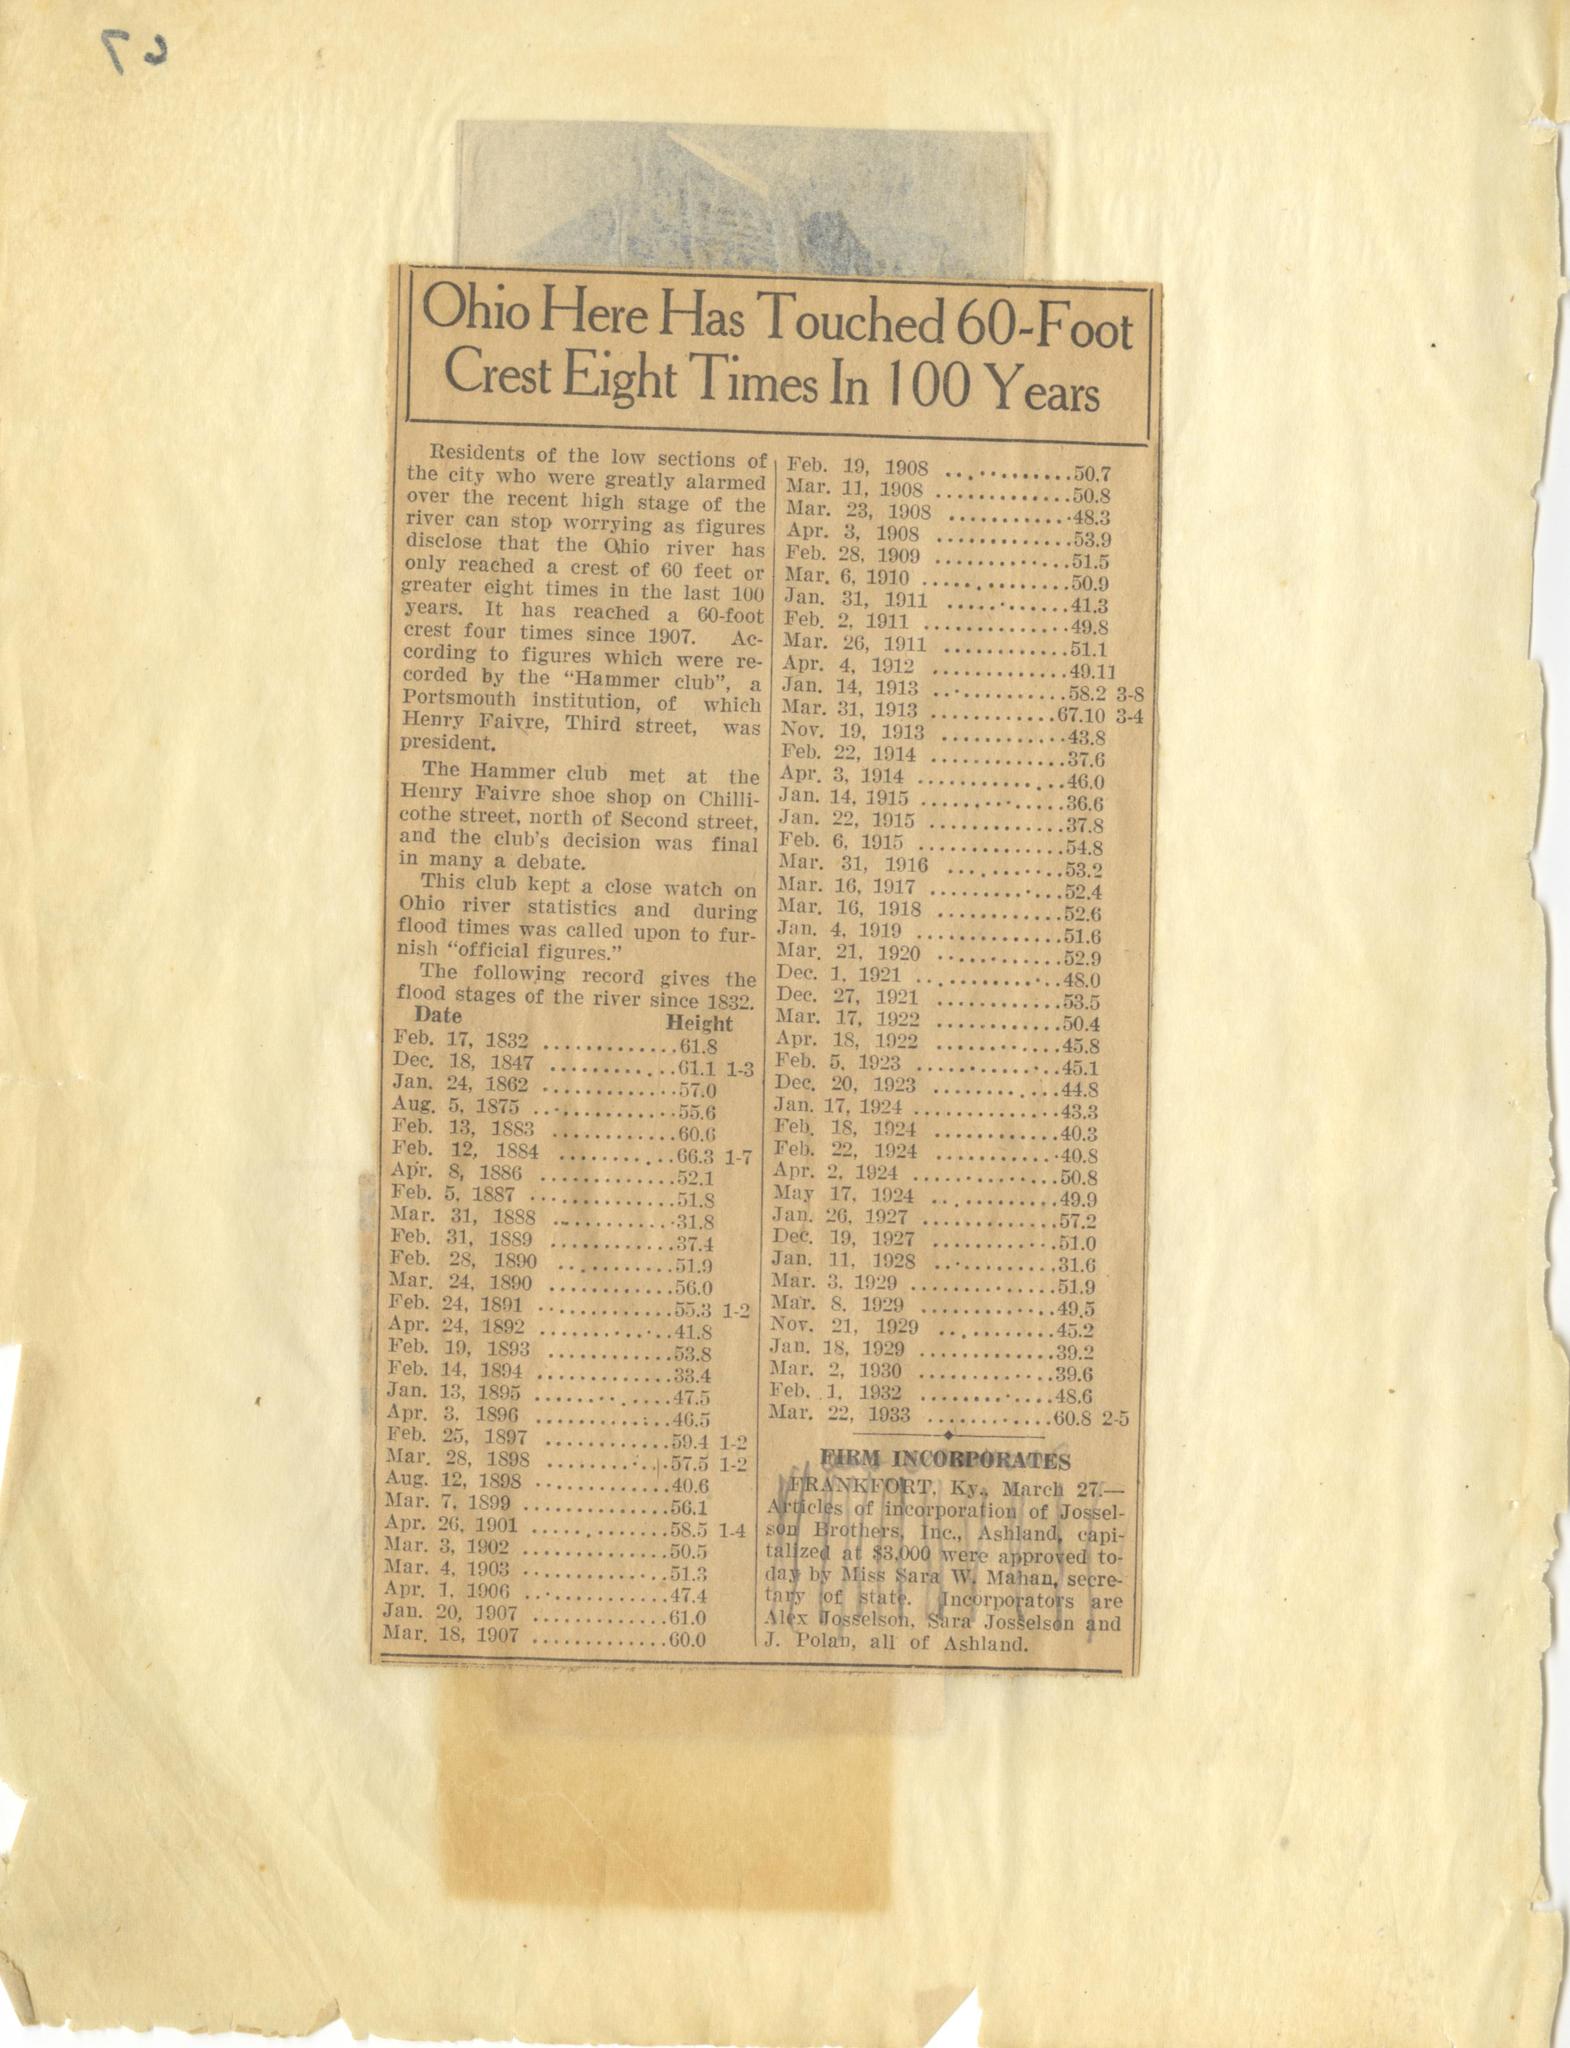 Ohio Here Has Touched 60-Foot
Crest Eight Times In 100 Years
Residents of the low sections of
the city who were greatly alarmed
over the recent high stage of the
river can stop worrying as figures
disclose that the Ohio river has
only reached a crest of 60 feet or
greater eight times in the last 100
years. It has reached a 60-foot
crest four times since 1907. Ac-
cording to figures which were re-
corded by the "Hammer club", a
Portsmouth institution, of which
Henry Faivre, Third street, was
president.
The Hammer club met at the
Henry Faivre shoe shop on Chilli-
cothe street, north of Second street,
and the club's decision was final
in many a debate.
This club kept a close watch on
Ohio river statistics and during
flood times was called upon to fur-
nish "official figures."
The following record gives the
flood stages of the river since 1832.
Date Height
Feb. 17, 1832 .............61.8
Dec. 18, 1847 ............61.1 1-3
Jan. 24, 1862 .............57.0
Aug. 5, 1875 .............55.6
Feb. 13, 1883 ............60.6
Feb. 12, 1884 ............66.3 1-7
Apr. 8, 1886 .............52.1
Feb. 5, 1887 .............51.8
Mar. 31, 1888 ............31.8
Feb. 31, 1889 ............37.4
Feb. 28, 1890 ............51.9
Mar. 24, 1890 ............56.0
Feb. 24, 1891 .............55.3 1-2
Apr. 24, 1892 .............41.8
Feb. 19, 1893 ............53.8
Feb. 14, 1894 .............33.4
Jan. 13, 1895 .............47.5
Apr. 3, 1896 .............46.5
Feb. 25, 1897 ............59.4 1-2
Mar. 28, 1898 ............57.5 1-2
Aug. 12, 1898 ............40.6
Mar. 7, 1899 .............56.1
Apr. 26, 1901 .............58.5 1-4
Mar. 3, 1902 .............50.5
Mar. 4, 1903 .............51.3
Apr. 1, 1906 .............47.4
Jan. 20, 1907 .............61.0
Mar. 18, 1907 .............60.0
Feb. 19, 1908 ............50.7
Mar. 11, 1908 .............50.8
Mar. 23, 1908 ............48.3
Apr. 3, 1908 .............53.9
Feb. 28, 1909 .............51.5
Mar. 6, 1910 .............50.9
Jan. 31, 1911 ............41.3
Feb. 2, 1911 ..............49.8
Mar. 26, 1911 ............51.1
Apr. 4, 1912 .............49.11
Jan. 14, 1913 ............58.2 3-8
Mar. 31, 1913 ............67.10 3-4
Nov. 19, 1913 ............43.8
Feb. 22, 1914 .............37.6
Apr. 3, 1914 ..............46.0
Jan. 14, 1915 .............36.6
Jan. 22, 1915 .............37.8
Feb. 6, 1915 ..............54.8
Mar. 31, 1916 ............53.2
Mar. 16, 1917 .............52.4
Mar. 16, 1918 ............52.6
Jan. 4, 1919 ..............51.6
Mar. 21, 1920 ............52.9
Dec. 1, 1921 ..............48.0
Dec. 27, 1921 ............53.5
Mar. 17, 1922 ............50.4
Apr. 18, 1922 ............45.8
Feb. 5, 1923 ..............45.1
Dec. 20, 1923 ............44.8
Jan. 17, 1924 .............43.3
Feb. 18, 1924 ............40.3
Feb. 22, 1924 ............40.8
Apr. 2, 1924 ..............50.8
May 17, 1924 ............49.9
Jan. 26, 1927 .............57.2
Dec. 19, 1927 ............51.0
Jan. 11, 1928 ............31.6
Mar. 3, 1929 ..............51.9
Mar. 8, 1929 .............49.5
Nov. 21, 1929 ...........45.2
Jan. 18, 1929 .............39.2
Mar. 2, 1930 .............39.6
Feb. 1, 1932 .............48.6
Mar. 22, 1933 ............60.8 2-5
FIRM INCORPORATES
FRANKFORT, Ky., March 27.—
Articles of incorporation of Jossel-
son Brothers, Inc., Ashland, capi-
talized at $3,000 were approved to-
day by Miss Sara W. Mahan, secre-
tary of state. Incorporators are
Alex Josselson, Sara Josselson and
J. Polan, all of Ashland.